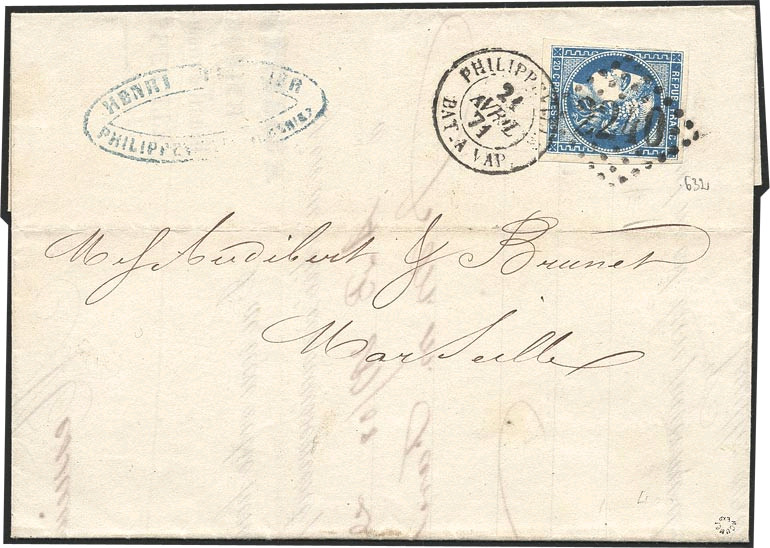 HENRI
PHILIPPE
PHILIPPE
21
AVRIL
71
BAT. A VAP.
REPUB. FRANC.
20 C. POSTES 20 C.
2240
632
Mrs Audibert & Brunet
Marseille